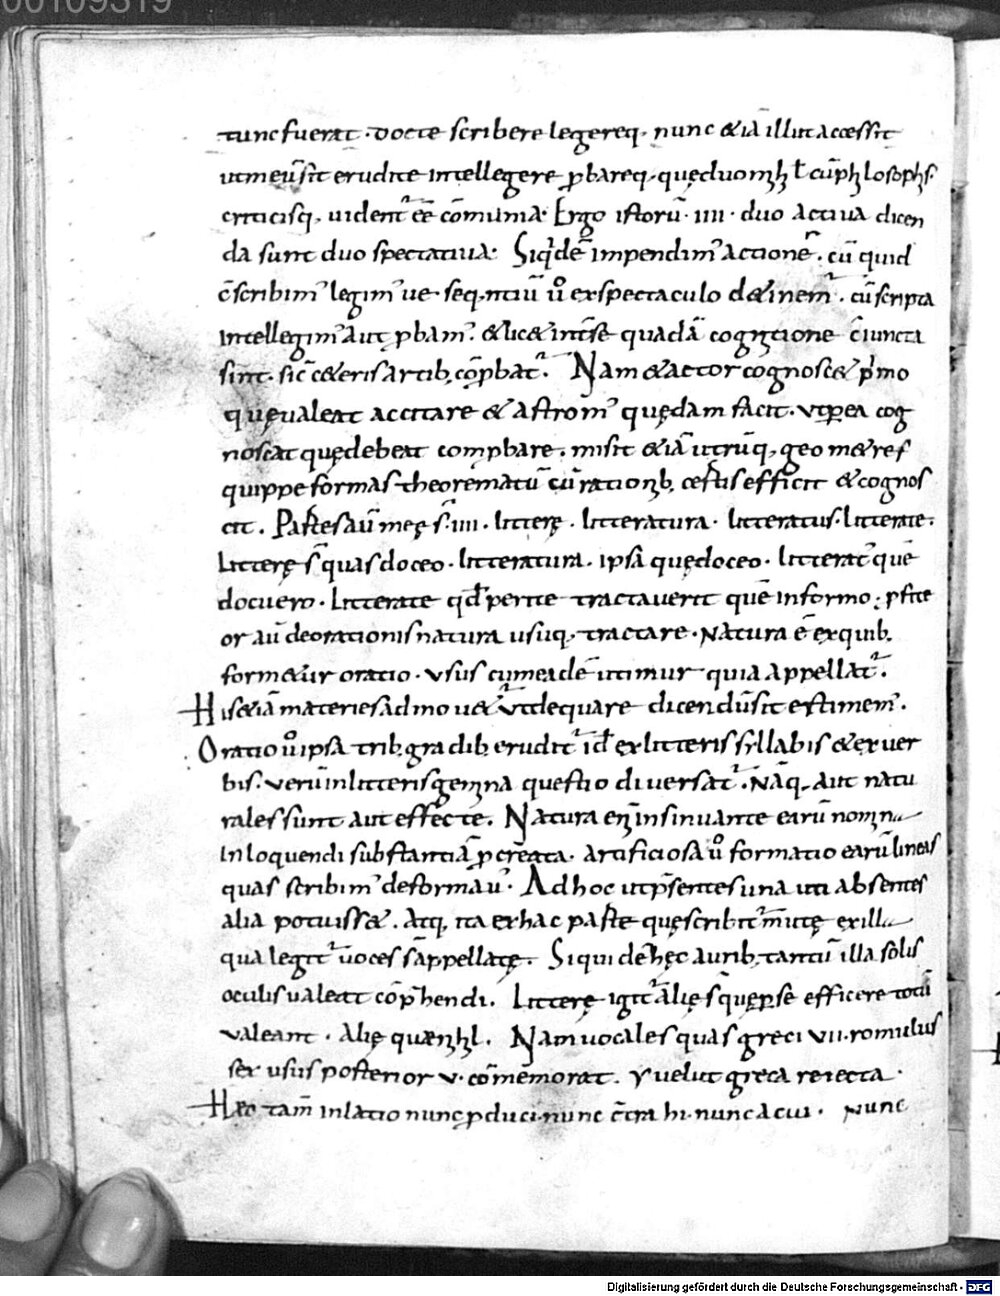 00109319
tunc fuerat · docte scribere legereq; nunc &iā illut accessit
utmeūsit erudite intellegere ꝓbareq; quęduo cūph losophis
criticisq; uident᷑ ēē cōmunia · Ergo istorū · IIII · duo actiua dicen
da sunt duo spectatiua · Siq̇dē impendim᾽ actionē · cū quid
c̄scribim᾽ legim᾽ ue · seq;ntiū u᷎o exspectaculo d&inem᷑ · cū scripta
intellegim᾽ aut ꝓbam᾽ · quadā cognitione c̄iuncta
sint · sic̄ c&eris artib; cōꝓbat᷑ · Nam &actor cognosc& pͥmo
quęualeat accitare & astronom᾽ quędam facit · vt ꝑea cog
noscat quędebeat comꝓbare · misit &iā utrūq; geom&res
quippe formas theorematū cū rationib; certis efficit & cognos
cit · Partes aū meę s̄ · IIII · Litterę · litteratura · litteratus · litterate ·
Litterę s̄ quas doceo · litteratura · ipsa quędoceo · litterat᾽ quē
docuero · Litterate qđ perite tractauerit quē informo · ꝓfite
or aū deorationis natura usuq; tractare · Natura ē exquib;
form&ur oratio · vsus cumeadē utimur quia appellat᷑ ·
His &iā materies admou&᷑ vtdequare dicendūsit estimem᾽ ·
Oratio u᷎o ipsa trib; gradib; erudit᷑ iđ exlitteris syllabis & exuer
bis · verū inlitteris gemina questio diuersat᷑ · Nāq; aut natu
rales sunt aut effecte · Natura en̄ insinuante earū nomina
inloquendi substantiā ꝓcreata · artificiosa u᷎o formatio earū lineas
quas scribim᾽ deformau᷑ · Adhoc utp̄sentes una uti absentes
alia potuiss& · Atq; ita exhac parte quęscribit᷑ mutę exilla
qua legit᷑ uoces s̄ appellatę · Siqui dē hęc aurib; tantū illa solis
oculis ualeat cōp̄hendi · Litterę igit᷑ alię s̄ quę ꝑse efficere totū
valeant · Alię quae nihil · Nam uocales quas greci VII · romulus
sex usus posterior V · cōmemorat · Y uelut greca reiecta ·
Hęc tam̄ inlatio nunc ꝓduci · nunc c̄tra hi · nunc acui · Nunc
Digitalisierung gefördert durch die Deutsche Forschungsgemeinschaft - DFG